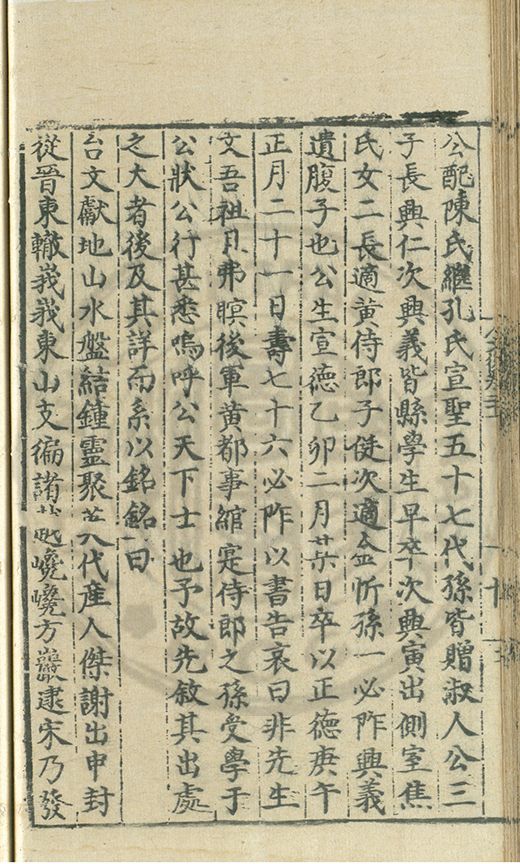 公配陳氏繼孔氏宣聖五十七代孫皆贈淑人公三
子長興仁次興義皆縣學生早卒次興寅出側室焦
氏女二長適黃侍郎子侹次適金忻孫一必阼興義
遺腹子也公生宣德乙卯二月廿日卒以正德庚午
正月二十一日壽七十六必阼以書告哀曰非先生
文吾祖目弗瞑後軍黃都事綰寔侍郎之孫受學于
公狀公行甚悉嗚呼公天下士也予故先敘其出處
之大者後及其詳而系以銘銘曰
台文獻地山水盤結鍾靈聚代產人傑謝出申封
從晉東轍峩峩東山支徧諸嶢嶢方巖逮宋乃發
十